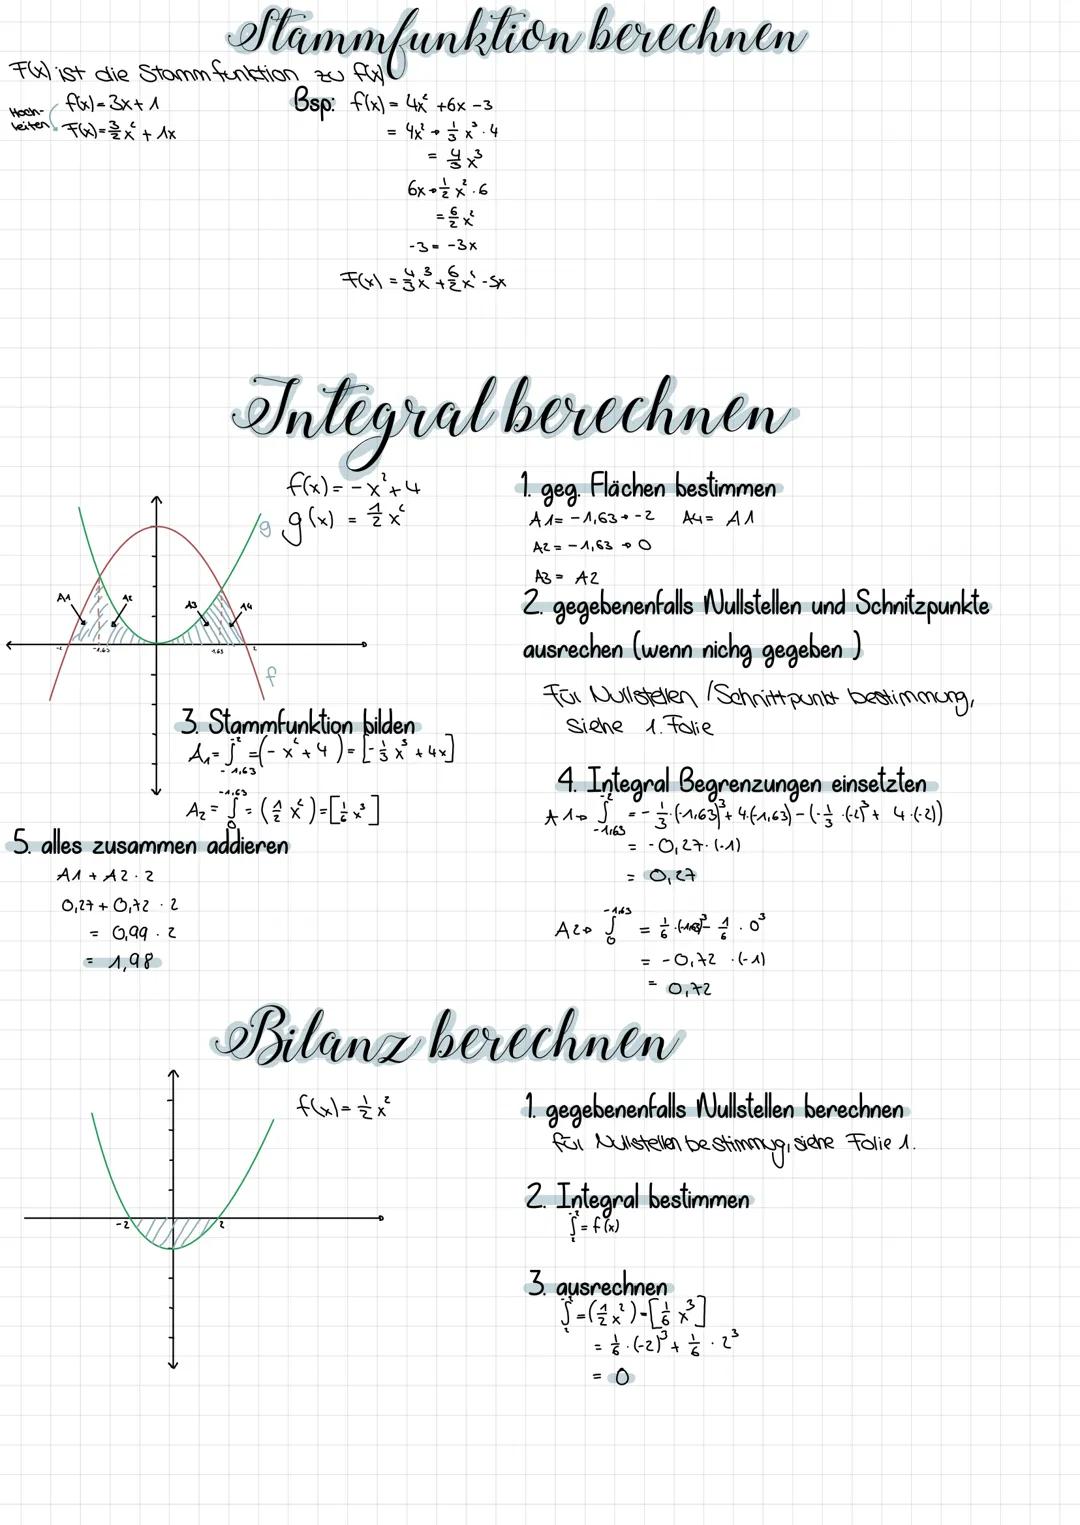 Stammfunktion berechnen
F(x) ist die Stammfunktion zu f(x)
Hoch-
leiten
f(x)=3x+1
F(x)=3/2x²+1x
Bsp: f(x) = 4x² +6x -3
= 4x² → 1/3 x³ · 4
= 4/3 x³
6x → 1/2 x² · 6
= 6/2 x²
-3 = -3x
F(x) = 4/3x³ + 6/2x² -5x
Integral berechnen
f(x) = -x²+4
g(x) = 1/2 x²
g
A1
A2
A3
A4
-2
-1,63
1,63
2
f
1. geg. Flächen bestimmen
A1= -1,63 → -2 A4= A1
A2 = -1,63 → 0
A3 = A2
2. gegebenenfalls Nullstellen und Schnitzpunkte
ausrechen (wenn nichg gegeben )
Für Nullstellen /Schnittpunkt bestimmung,
siehe 1. Folie
3. Stammfunktion bilden
A₁= ∫ -2 -1,63 =(-x²+4)=[-1/3 x³ + 4x]
A₂ = ∫ -1,63 0 = (1/2 x²)=[1/6 x³]
4. Integral Begrenzungen einsetzten
A1 → ∫ -2 -1,63 = -1/3·(-1,63)³+ 4·(-1,63) - (-1/3 ·(-2)³ + 4·(-2))
= -0,27·(-1)
= 0,27
A2 → ∫ -1,63 0 = 1/6·(-1,63)³ - 1/6 · 0³
= -0,72 ·(-1)
= 0,72
5. alles zusammen addieren
A1 + A2 · 2
0,27 + 0,72 · 2
= 0,99 · 2
= 1,98
Bilanz berechnen
f(x) = 1/2 x²
-2
2
1. gegebenenfalls Nullstellen berechnen
für Nullstellen bestimmug, siehe Folie 1.
2. Integral bestimmen
∫ -2 2 = f(x)
3. ausrechnen
∫ -2 2 =(1/2 x²)=[1/6 x³]
= 1/6 · (-2)³ + 1/6 · 2³
= 0